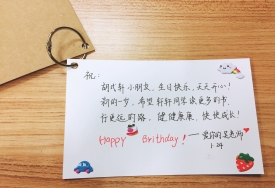 祝：
胡代轩小朋友，生日快乐，天天开心！
新的一岁，希望轩轩同学读更多的书，
行更远的路，健健康康，快快成长！
Happy Brithday！
——爱你的吴老师
1.29